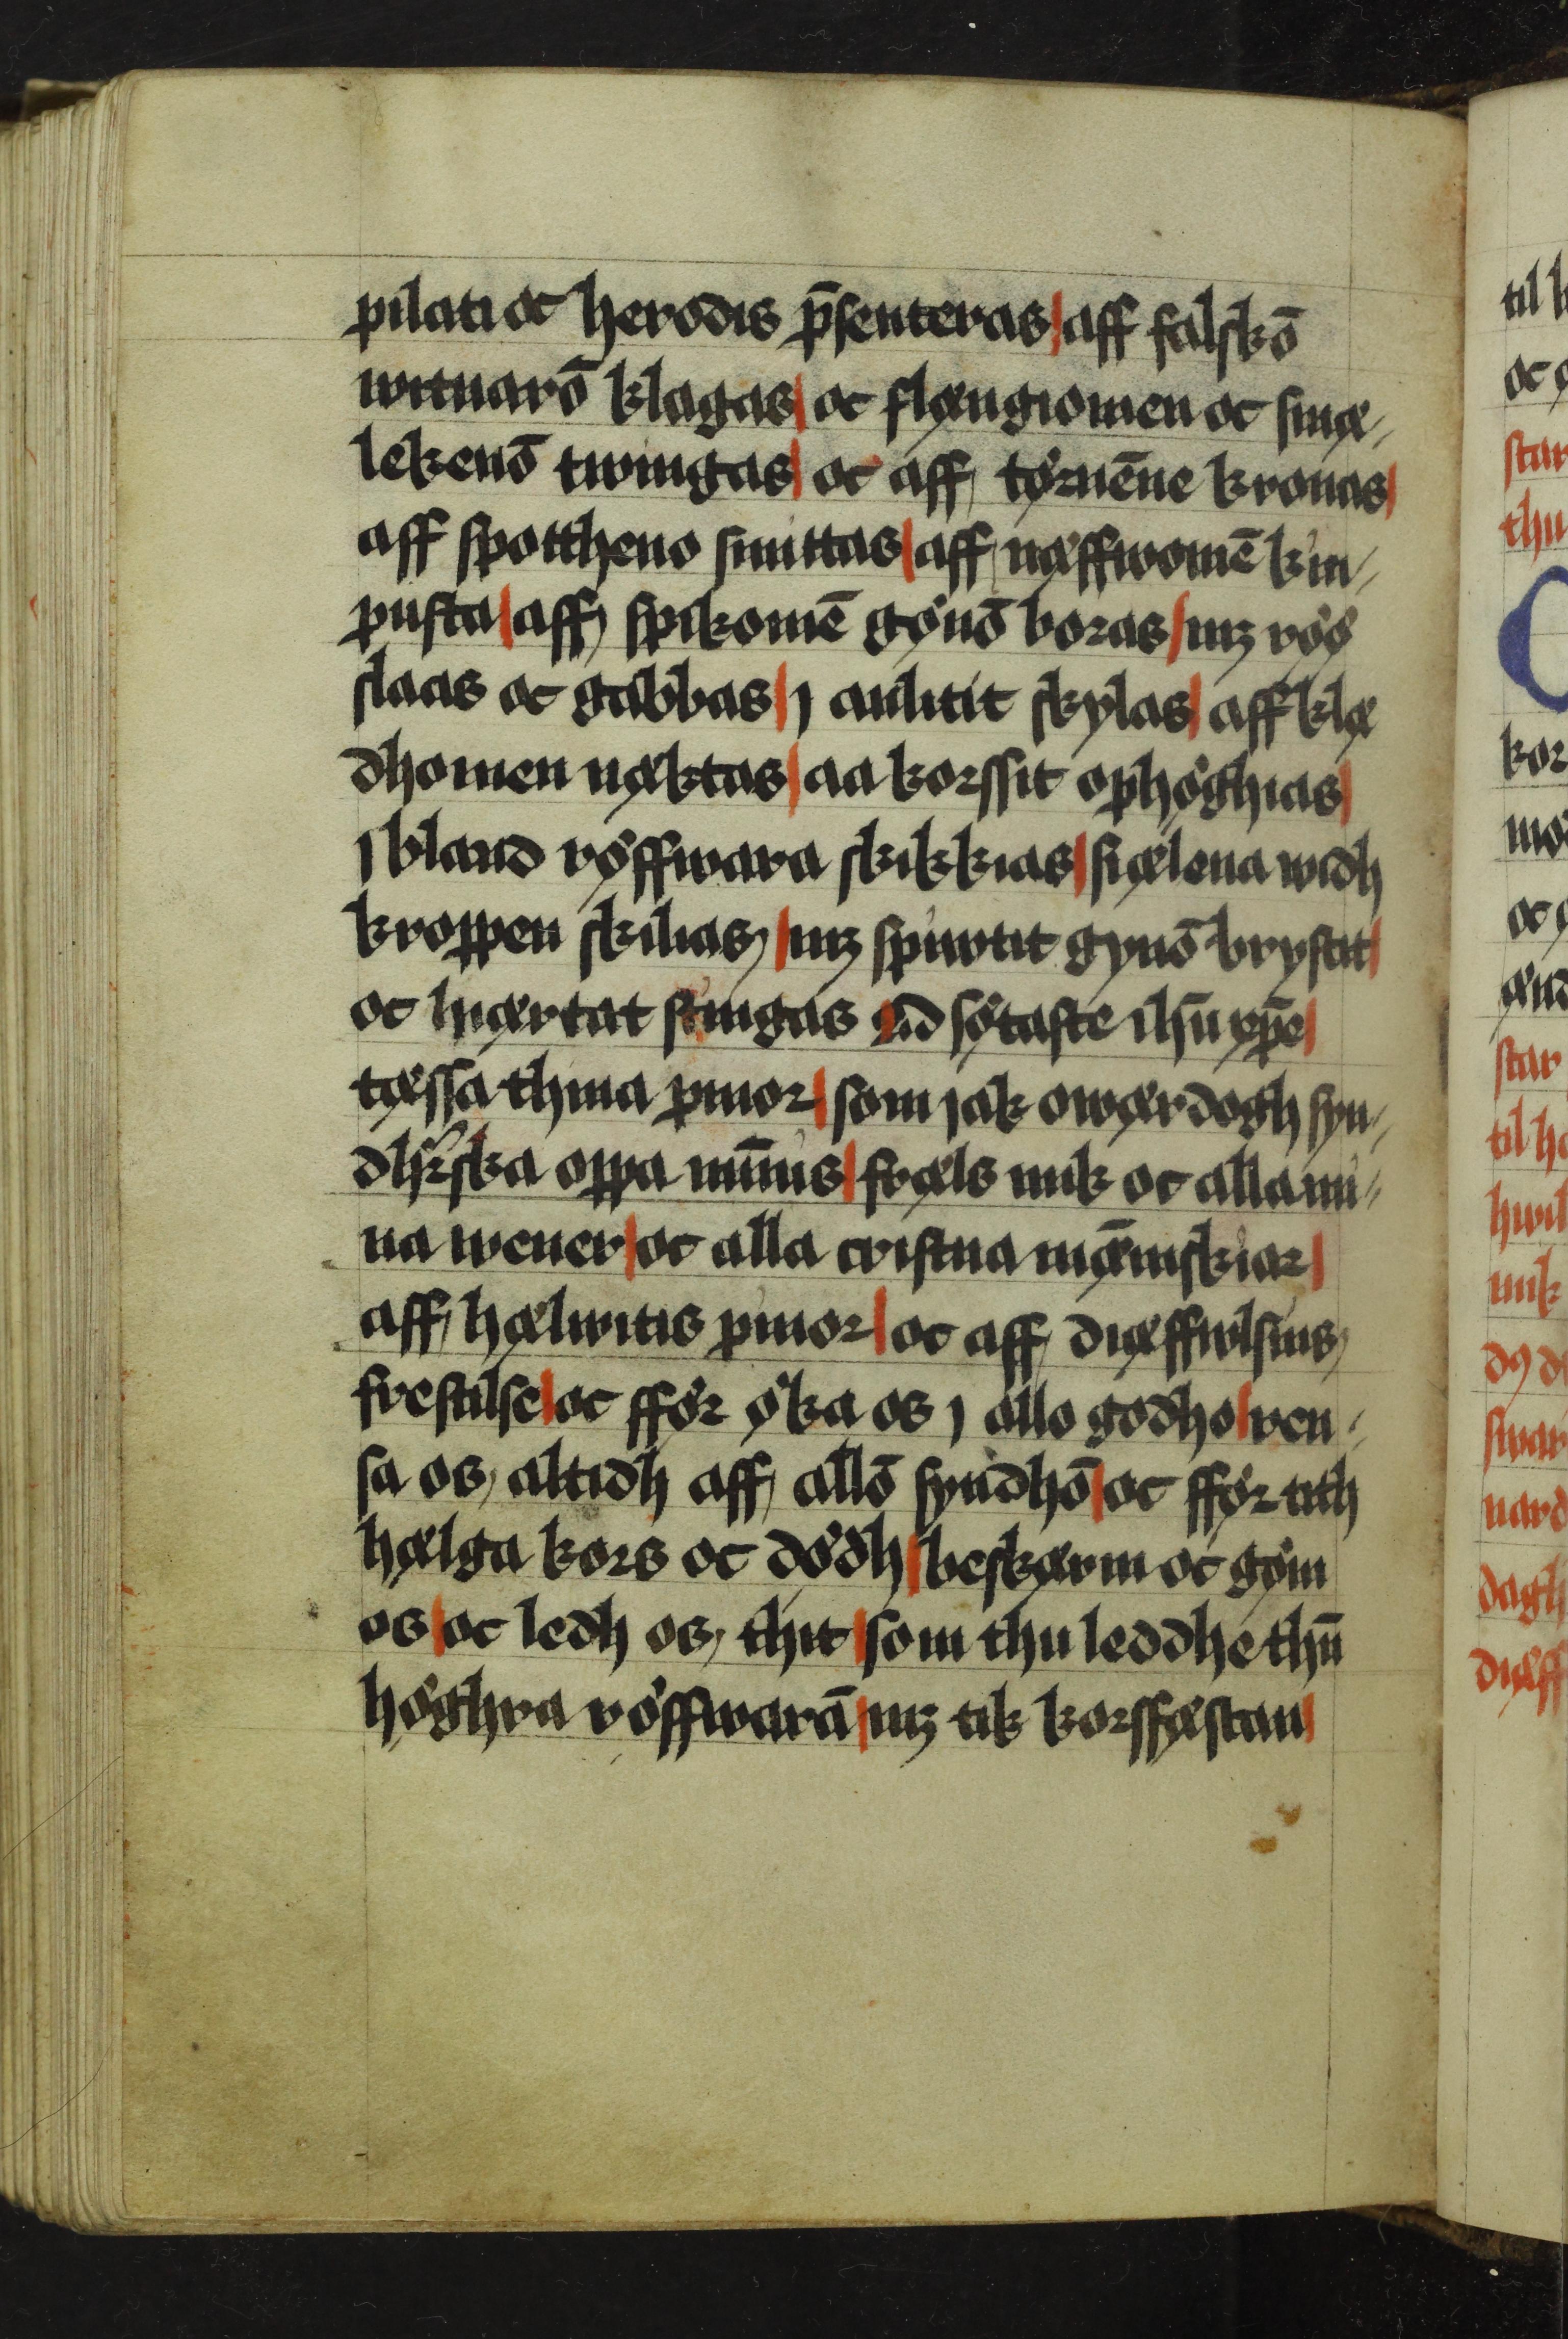 pilati oc herodis p̄senteras | aff falskō
witnarō klagas | oc flængiomen oc smæ-
lekenō twingas | oc aff tørnēne kronas |
aff spottheno smittas | aff næffwomē kin-
pusta | aff spikomē gønō boras | mꝫ røø
slaas oc gabbas | j anlitit skylas | aff klæ
dhomen næktas | aa korssit ophøghias |
j bland røffwara skikkias | siælena widh
kroppen skilias | mꝫ spiwtit gynō brystit |
oc hiærtat stingas Nu søtaste ihū xp̄e |
tæssa thina pinor | som jak owærdogh syn-
dh̄rska oppa min̄us | fræls mik oc alla mi-
na wener | oc alla cristna mǣniskior |
aff hælwitis pinor | oc aff diæffwlsins
frestilse | oc ffør øka os j allo godho | ren-
sa os altidh aff allō syndhō | oc ffør tith
hælga kors oc dødh | beskærm oc gøm
os | oc ledh os thit | som thu leddhe thn̄
høghra røffwarā | mꝫ tik korsfæstan |
til h
oc
star
thu
kor
mo
oc
ænd
star
til he
hwil
mik
swar
nard
dagh
diæff